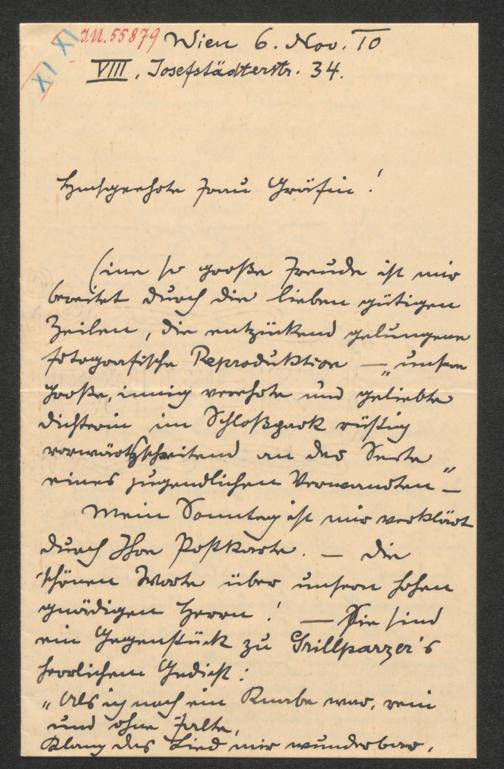 XI XI I.N. 55879 Wien 6. Nov. 10
VIII, Josefstädterstr. 34.
Hochgeehrte Frau Gräfin!
Eine so große Freude ist mir
bereitet durch die lieben gütigen
Zeilen, die entzückend gelungene
fotografische Reproduktion — „unsere
große, innig verehrte und geliebte
Dichterin im Schloßpark rüstig
vorwärtsschreitend an der Seite
eines jugendlichen Verwandten" —
Mein Sonntag ist mir verklärt
durch Ihre Postkarte. — Die
schönen Worte über unsern hohen
gnädigen Herrn! — Sie sind
ein Gegenstück zu Grillparzer's
herrlichem Gedicht:
„Als ich noch ein Knabe war, rein
und ohne Falte,
Klang das Lied mir wunderbar,